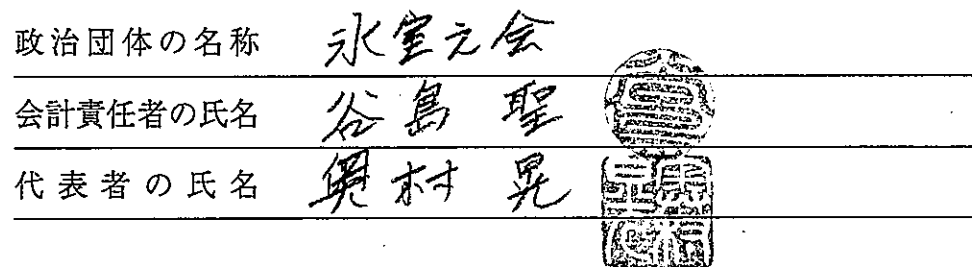 政治団体の名称 氷室元会
会計責任者の氏名 谷島 聖
代表者の氏名 奥村 晃